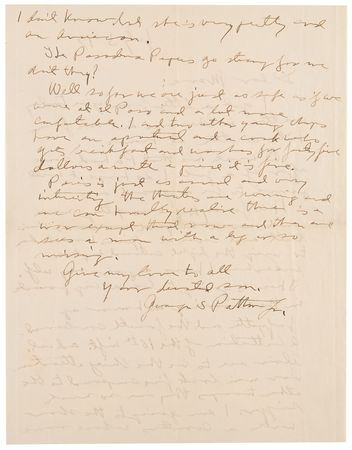 I don't know but she is very pretty and
an american.
The Pasadena Papers go strong for me
don't they?
Well so far we are just as safe as if we
were at El Paso and a lot more
comfortable. I and two other young chaps
have an apartment and a cook who
gets breakfast and works for forty five
dollars a month a piece it is fine.
Paris is just as usual and very
interesting. The theaters are running and
we can hardly realize there is a
war except now and then one
sees a man with a leg or so
missing.
Give my love to all
Your devoted son.
George S Patton Jr.